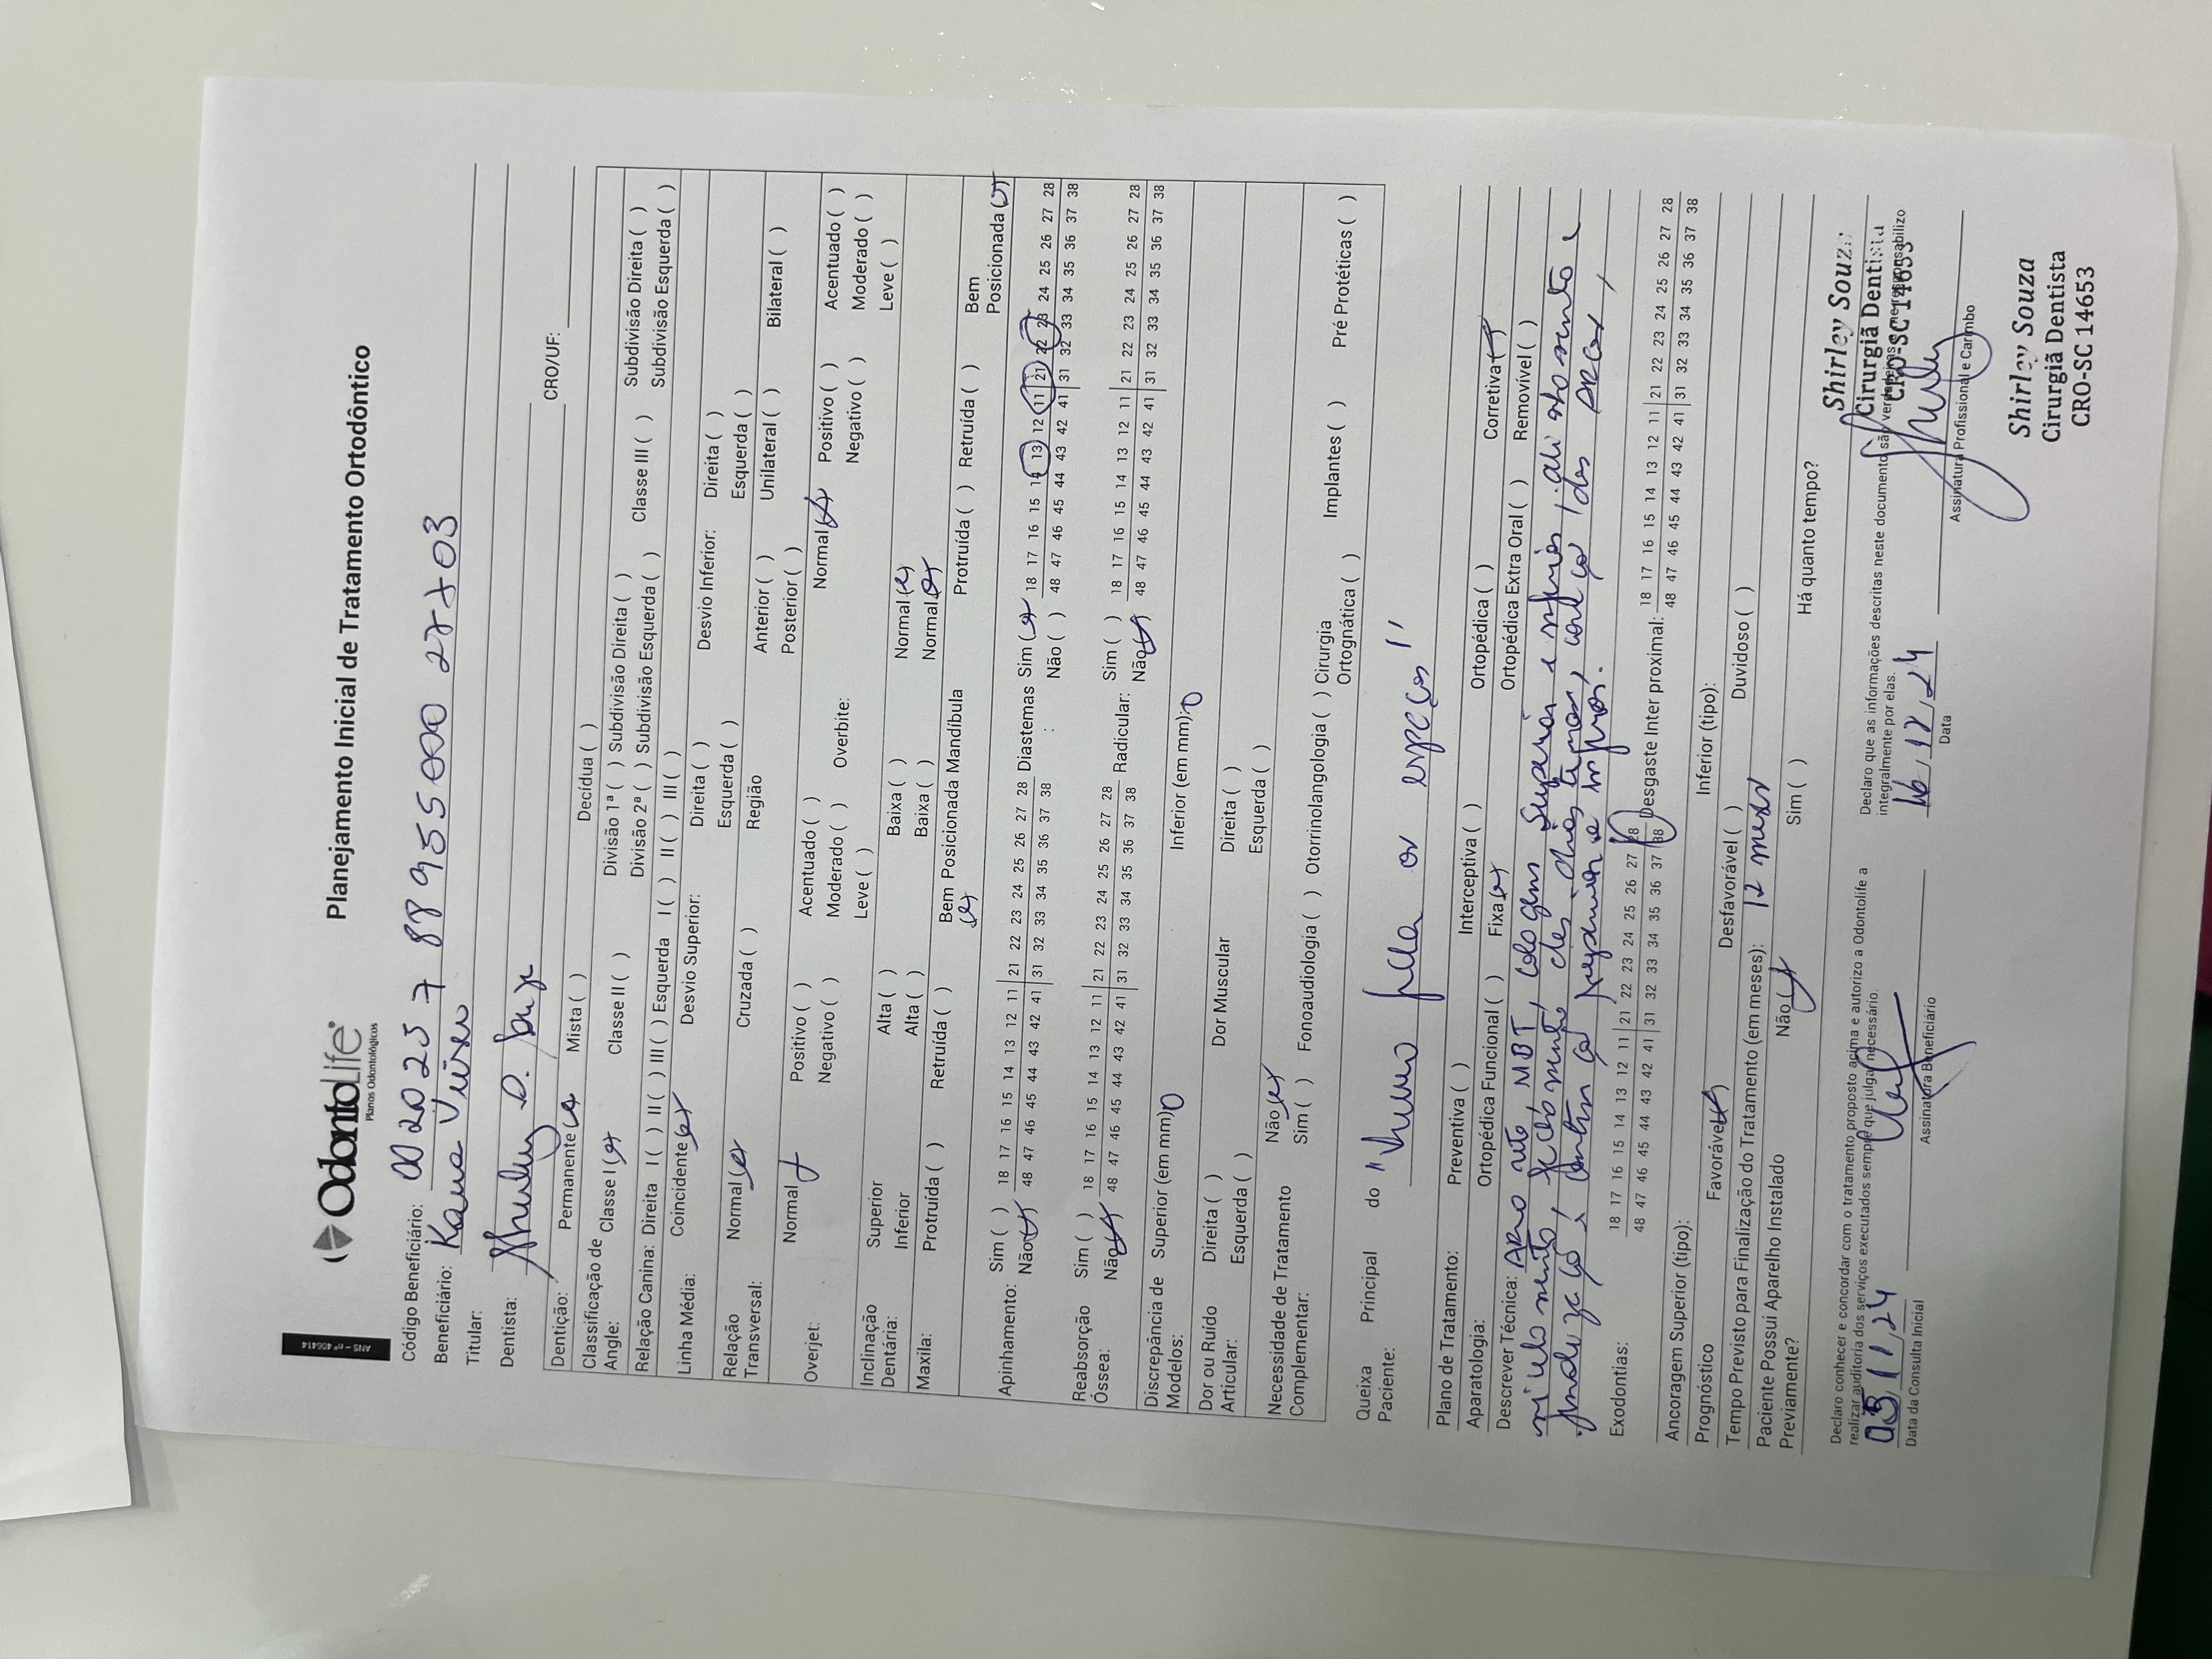 ANS - nº 406414
OdontoLife®
Planos Odontológicos
Planejamento Inicial de Tratamento Ortodôntico
Código Beneficiário: 002025 7 88 955000 27703
Beneficiário: Kaua Vieira
Titular:
Dentista: Shirley D. Souza CRO/UF:
Dentição: Permanente (x) Mista ( ) Decídua ( )
Classificação de Angle: Classe I (x) Classe II ( ) Divisão 1ª ( ) Subdivisão Direita ( ) Classe III ( ) Subdivisão Direita ( )
Divisão 2ª ( ) Subdivisão Esquerda ( ) Subdivisão Esquerda ( )
Relação Canina: Direita I ( ) II ( ) III ( ) Esquerda I ( ) II ( ) III ( )
Linha Média: Coincidente (x) Desvio Superior: Direita ( ) Desvio Inferior: Direita ( )
Esquerda ( ) Esquerda ( )
Relação Transversal: Normal (x) Cruzada ( ) Região Anterior ( ) Unilateral ( ) Bilateral ( )
Posterior ( )
Overjet: Normal x Positivo ( ) Acentuado ( ) Overbite: Normal (x) Positivo ( ) Acentuado ( )
Negativo ( ) Moderado ( ) Negativo ( ) Moderado ( )
Leve ( ) Leve ( )
Inclinação Dentária: Superior Alta ( ) Baixa ( ) Normal (x)
Inferior Alta ( ) Baixa ( ) Normal (x)
Maxila: Protruída ( ) Retruída ( ) Bem Posicionada (x) Mandíbula Protruída ( ) Retruída ( ) Bem Posicionada (x)
Apinhamento: Sim ( ) 18 17 16 15 14 13 12 11 | 21 22 23 24 25 26 27 28 Diastemas : Sim (x) 18 17 16 15 14 13 12 11 | 21 22 23 24 25 26 27 28
Não (x) 48 47 46 45 44 43 42 41 | 31 32 33 34 35 36 37 38 Não ( ) 48 47 46 45 44 43 42 41 | 31 32 33 34 35 36 37 38
Reabsorção Óssea: Sim ( ) 18 17 16 15 14 13 12 11 | 21 22 23 24 25 26 27 28 Radicular: Sim ( ) 18 17 16 15 14 13 12 11 | 21 22 23 24 25 26 27 28
Não (x) 48 47 46 45 44 43 42 41 | 31 32 33 34 35 36 37 38 Não (x) 48 47 46 45 44 43 42 41 | 31 32 33 34 35 36 37 38
Discrepância de Modelos: Superior (em mm): 0 Inferior (em mm): 0
Dor ou Ruído Articular: Direita ( ) Dor Muscular Direita ( )
Esquerda ( ) Esquerda ( )
Necessidade de Tratamento Complementar: Não (x)
Sim ( ) Fonoaudiologia ( ) Otorrinolangologia ( ) Cirurgia Ortognática ( ) Implantes ( ) Pré Protéticas ( )
Queixa Principal do Paciente: os espaços"
Plano de Tratamento: Preventiva ( ) Interceptiva ( ) Ortopédica ( ) Corretiva (x)
Aparatologia: Ortopédica Funcional ( ) Fixa (x) Ortopédica Extra Oral ( ) Removível ( )
Descrever Técnica: Arco reto, MBT, colagem Superior e inferior, alinhamento e
nivelamento, fechamento des diastemas, correção das arcos,
finalização, contenção
Exodontias: 18 17 16 15 14 13 12 11 | 21 22 23 24 25 26 27 28 Desgaste Inter proximal: 18 17 16 15 14 13 12 11 | 21 22 23 24 25 26 27 28
48 47 46 45 44 43 42 41 | 31 32 33 34 35 36 37 38 48 47 46 45 44 43 42 41 | 31 32 33 34 35 36 37 38
Ancoragem Superior (tipo): Inferior (tipo):
Prognóstico Favorável (x) Desfavorável ( ) Duvidoso ( )
Tempo Previsto para Finalização do Tratamento (em meses): 12 meses
Paciente Possui Aparelho Instalado Previamente? Não (x) Sim ( ) Há quanto tempo?
Declaro conhecer e concordar com o tratamento proposto acima e autorizo a Odontolife a
realizar auditoria dos serviços executados sempre que julgar necessário.
05/11/24
Data da Consulta Inicial
Assinatura Beneficiário
Declaro que as informações descritas neste documento são verdadeiras e me responsabilizo
integralmente por elas.
16/12/24
Data
Assinatura Profissional e Carimbo
Shirley Souza
Cirurgiã Dentista
CRO-SC 14653
Shirley Souza
Cirurgiã Dentista
CRO-SC 14653